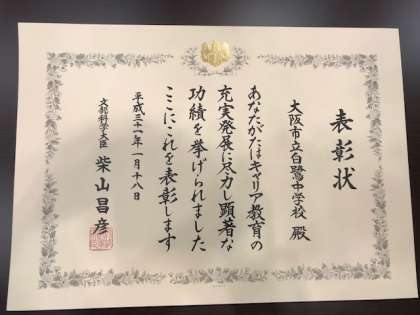 表彰状
大阪市立白鷺中学校 殿
あなたがたはキャリア教育の
充実発展に尽力し顕著な
功績を挙げられました
ここにこれを表彰します
平成三十一年一月十八日
文部科学大臣 柴山昌彦